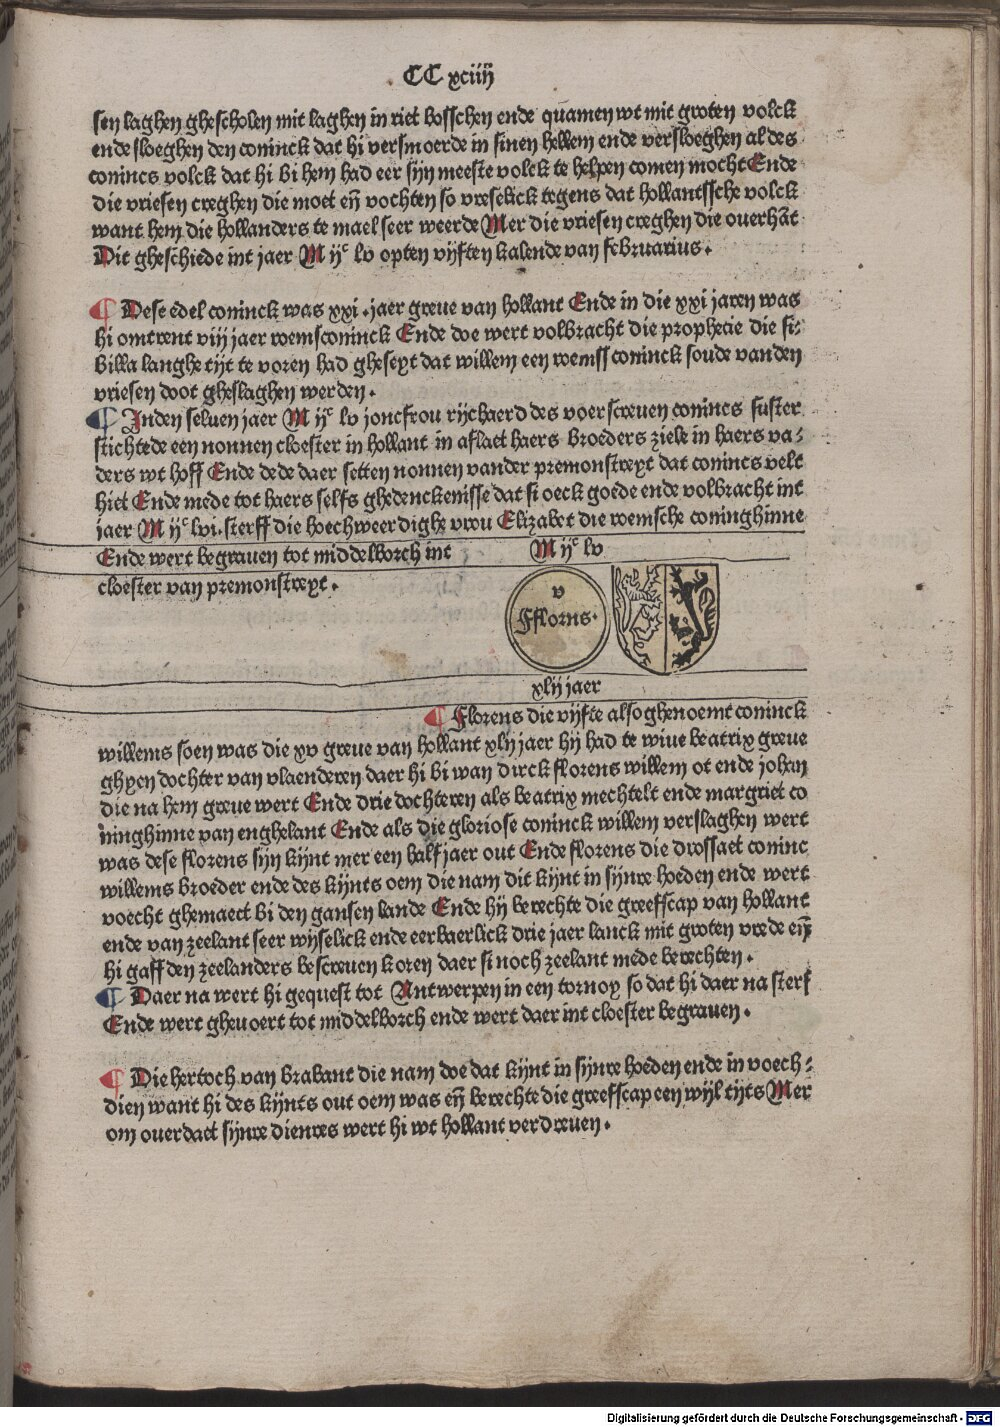 CC xciiij
sen laghen ghescholen mit laghen in riet bosschen ende quamen wt mit groten volck
ende sloeghen den coninck dat hi versmoerde in sinen hellem ende versloeghen al des
conincs volck dat hi bi hem had eer sijn meeste volck te helpen comen mocht Ende
die vriesen creghen die moet eñ vochten so vreselick tegens dat hollantssche volck
want hem die hollanders te mael seer weerde Mer die vriesen creghen die ouerhãt
Dit gheschiede int jaer M ijᶜ lv opten vijften kalende van februarius.
¶ Dese edel coninck was xxi. jaer greue van hollant Ende in die xxi jaren was
hi omtrent viij jaer roemsconinck Ende doe wert volbracht die prophecie die si⸗
billa langhe tijt te voren had gheseyt dat willem een roemss coninck soude vanden
vriesen doot gheslaghen werden.
¶ Inden seluen jaer M ijᶜ lv joncfrou rijchaerd des voerscreuen conincs suster
stichtede een nonnen cloester in hollant in aflaet haers broeders ziele in haers va⸗
ders wt hoff Ende dede daer setten nonnen vander premonstreyt dat conincs velt
hiet Ende mede tot haers selfs ghedenckenisse dat si oeck goede ende volbracht int
jaer M ijᶜ lvi. sterff die hoechweerdighe vrou Elizabet die roemsche coninghinne
Ende wert begrauen tot middelborch int
M ijᶜ lv
cloester van premonstreyt.
v
Fflorns.
xlij jaer
¶ Florens die vijfte also ghenoemt coninck
willems soen was die xv greue van hollant xlij jaer hij had te wiue beatrix greue
ghyen dochter van vlaenderen daer hi bi wan dirck florens willem ot ende johan
die na hem greue wert Ende drie dochteren als beatrix mechtelt ende margriet co
ninghinne van enghelant Ende als die gloriose coninck willem verslaghen wert
was dese florens sijn kijnt mer een half jaer out Ende florens die drossaet coninc
willems broeder ende des kijnts oem die nam dit kijnt in sijnre hoeden ende wert
voecht ghemaect bi den gansen lande Ende hij berechte die greefscap van hollant
ende van zeelant seer wijselick ende eerbaerlick drie jaer lanck mit groten vrede eñ
hi gaff den zeelanders bescreuen koren daer si noch zeelant mede berechten.
¶ Daer na wert hi gequest tot Antwerpen in een tornoy so dat hi daer na sterf
Ende wert gheuoert tot middelborch ende wert daer int cloester begrauen.
¶ Die hertoch van brabant die nam doe dat kijnt in sijnre hoeden ende in voech⸗
dien want hi des kijnts out oem was eñ berechte die greefscap een wijl tijts Mer
om ouerdaet sijnre dienres wert hi wt hollant verdreuen.
Digitalisierung gefördert durch die Deutsche Forschungsgemeinschaft - DFG